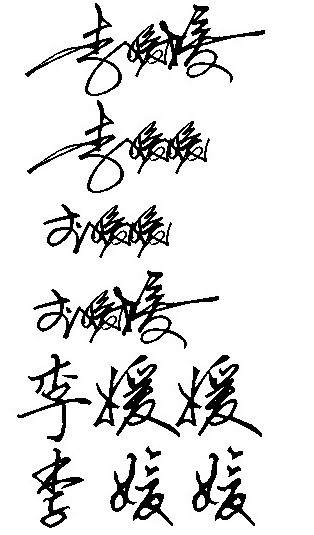 李媛媛
李媛媛
李媛媛
李媛媛
李媛媛
李媛媛